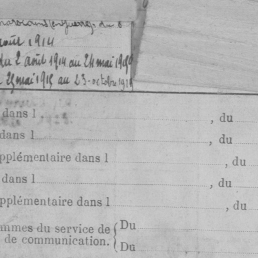 août 1914
du 2 août 1914 au 24 mai 1915
au 23 octobre 19
dans l , du
dans l , du
pplémentaire dans l , du
dans l , du
pplémentaire dans l , du
mmes du service de { Du
de communication. { Du